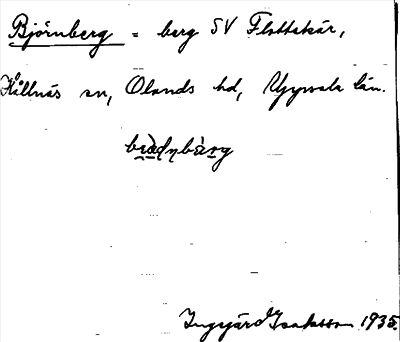 Björnberg = berg SV Flottskär,
Hållnäs sn, Olands hd, Uppsala län.
Ingegärd Isaksson 1935.